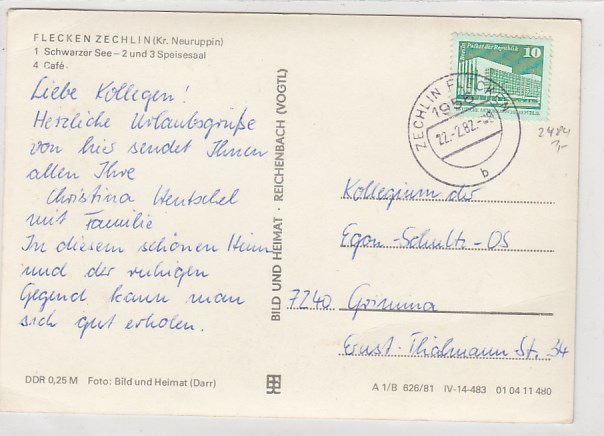 FLECKEN ZECHLIN (Kr. Neuruppin)
1 Schwarzer See – 2 und 3 Speisesaal
4 Café
Liebe Kollegen!
Herzliche Urlaubsgrüße
von hier sendet Ihnen
allen Ihre
Christina Hentschel
mit Familie
In diesem schönen Heim
und der ruhigen
Gegend kann man
sich gut erholen.
DDR 0,25 M Foto: Bild und Heimat (Darr)
BILD UND HEIMAT · REICHENBACH (VOGTL)
Palast der Republik 10
ZECHLIN FLECKEN
1955
22.-2.82.-9
b
2484
Kollegium der
Egon-Schultz-OS
7240 Grimma
Ernst-Thälmann-St. 34
A 1/B 626/81 IV-14-483 01 04 11 480